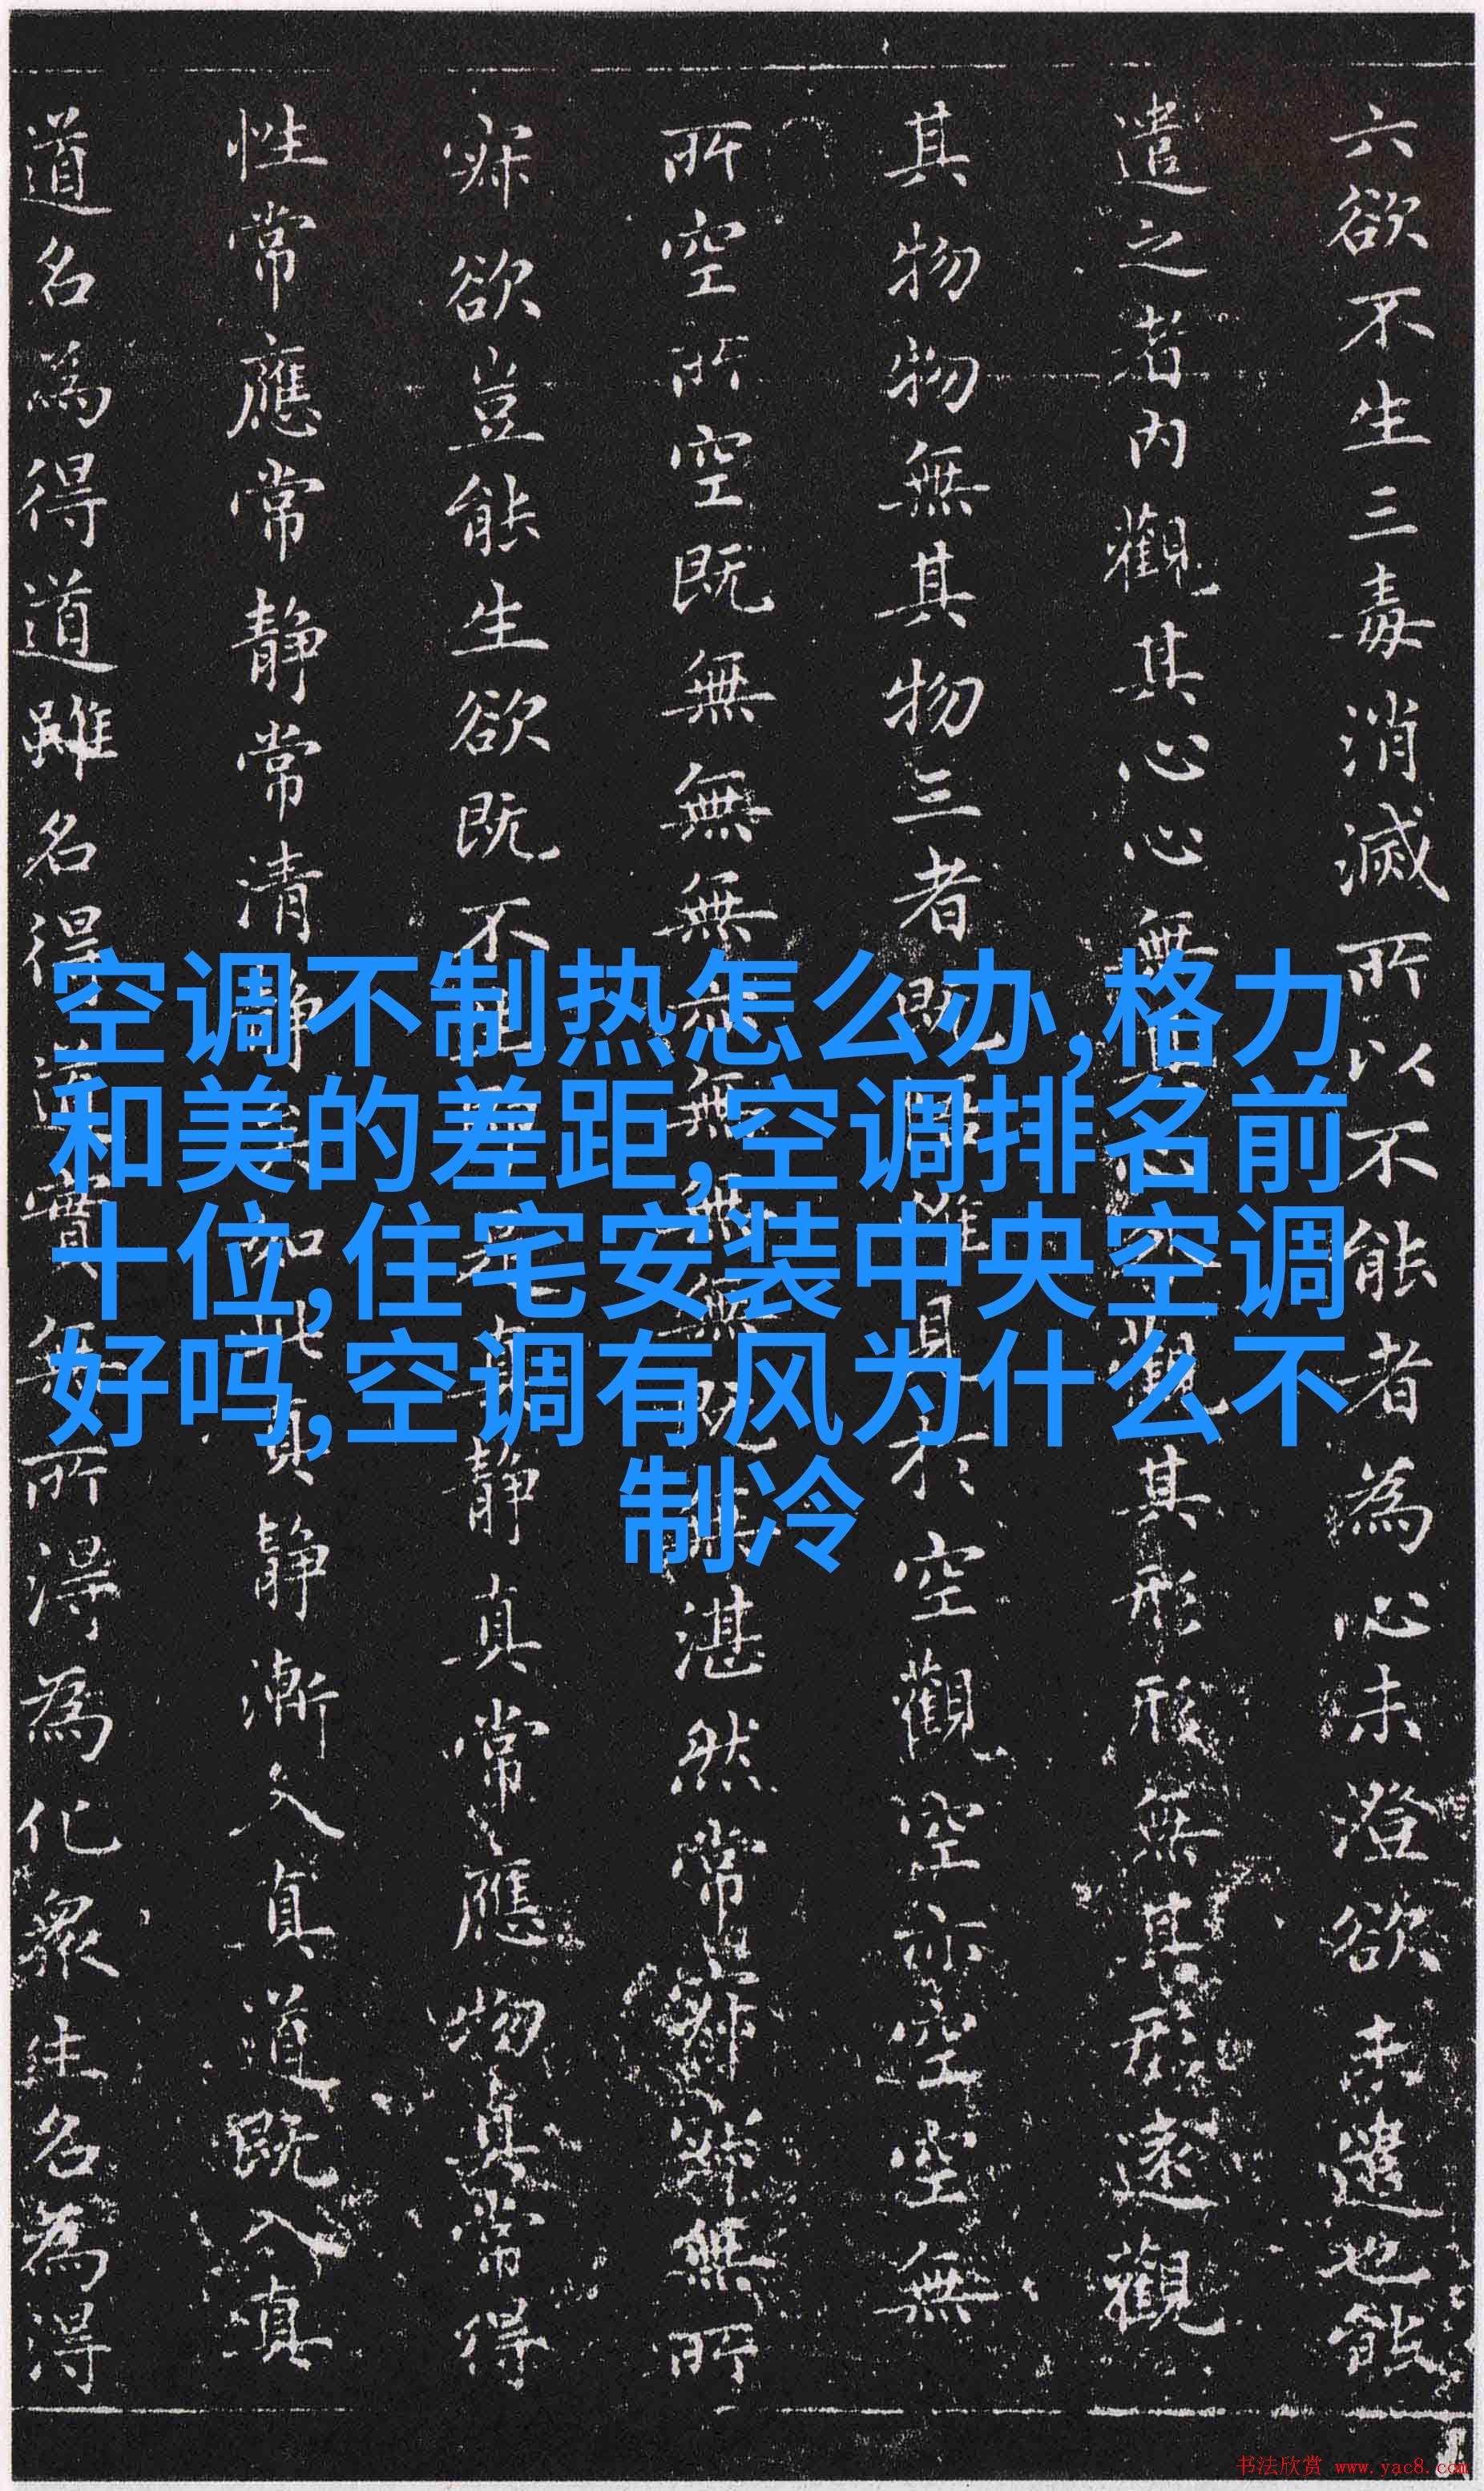 六欲不生三毒消滅所以不能者為心未澄欲未遣也能
遣之者內觀其心心無其心外觀其形形無其形遠觀
其物物無其物三者既悟唯見於空觀空亦空空無
所空所空既無無無亦無無無既無湛然常寂寂無所
寂欲豈能生欲既不生即是真静真常應物真常得
性常應常静常清静矣如此真静漸入真道既入真
道名為得道雖名得道實無所得為化眾生名為得
空调不制热怎么办,格力
和美的差距,空调排名前
十位,住宅安装中央空调
好吗,空调有风为什么不
制冷
书法欣赏 www.yac8.com